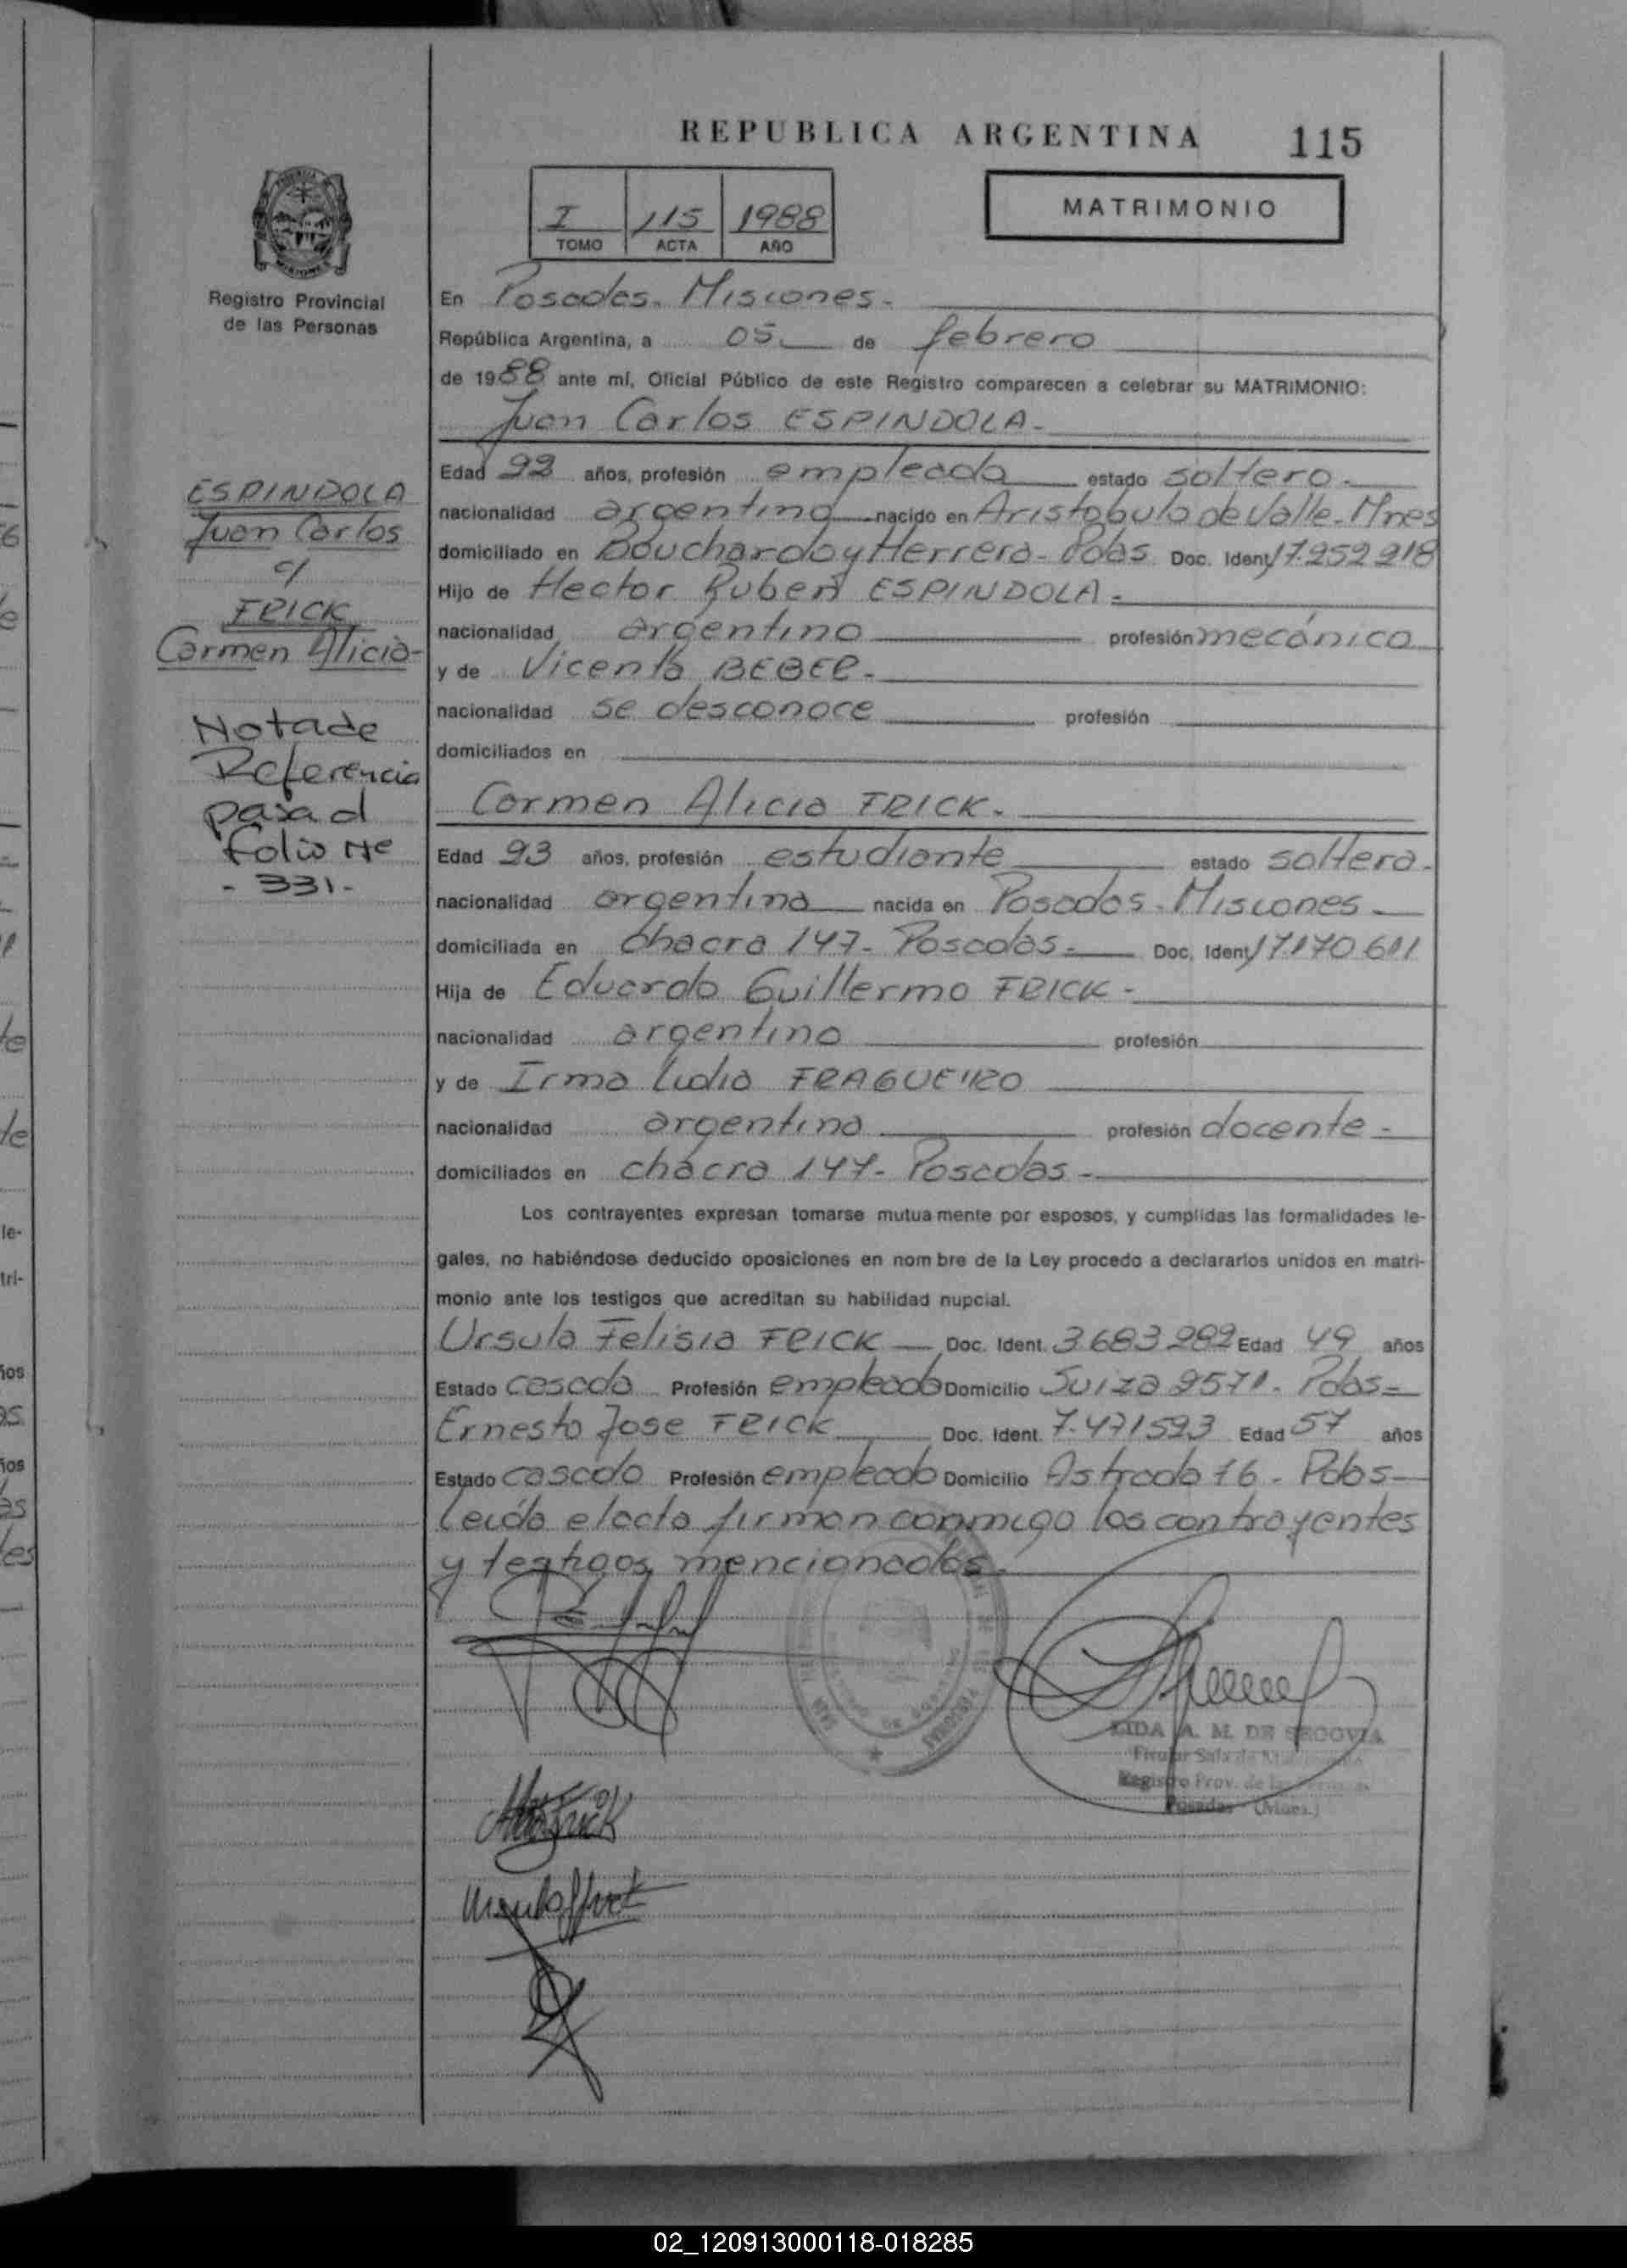 REPUBLICA ARGENTINA 115
I 115 1988
TOMO ACTA AÑO
MATRIMONIO
Registro Provincial
de las Personas
En Posadas. Misiones.
República Argentina, a 05 de febrero
de 1988 ante mí, Oficial Público de este Registro comparecen a celebrar su MATRIMONIO:
Juan Carlos ESPINDOLA.
Edad 22 años, profesión empleado estado soltero.
nacionalidad argentino nacido en Aristobulo de Valle. Mnes
domiciliado en Bouchardo y Herrera - Pdas Doc. Ident. 17.252 218
Hijo de Hector Ruben ESPINDOLA.
nacionalidad argentino profesión mecánico
y de Vicenta BEBER.
nacionalidad se desconoce profesión
domiciliados en
Carmen Alicia FRICK.
Edad 23 años, profesión estudiante estado soltera.
nacionalidad argentina nacida en Posadas - Misiones
domiciliada en chacra 147 - Posadas. Doc. Ident. 17.170 611
Hija de Eduardo Guillermo FRICK -
nacionalidad argentino profesión
y de Irma Lidia FRAGUEIRO
nacionalidad argentina profesión docente
domiciliados en chacra 147 - Posadas -
Los contrayentes expresan tomarse mutuamente por esposos, y cumplidas las formalidades le-
gales, no habiéndose deducido oposiciones en nombre de la Ley procedo a declararlos unidos en matri-
monio ante los testigos que acreditan su habilidad nupcial.
Ursula Felisia FRICK Doc. Ident. 3683 282 Edad 49 años
Estado casada Profesión empleada Domicilio Suiza 2571. Pdas
Ernesto Jose FRICK Doc. Ident. 7.471593 Edad 57 años
Estado casado Profesión empleado Domicilio Astrada 16 - Pdas
Leída el acta firman conmigo los contrayentes
y testigos mencionados.
LIDA A. M. DE SEGOVIA
Titular Sala de
Registro Prov. de las Personas
Posadas (Mnes.)
ESPINDOLA
Juan Carlos
c/
FRICK
Carmen Alicia
Nota de
Referencia
pasa al
folio Nº
- 331 -
02_120913000118-018285